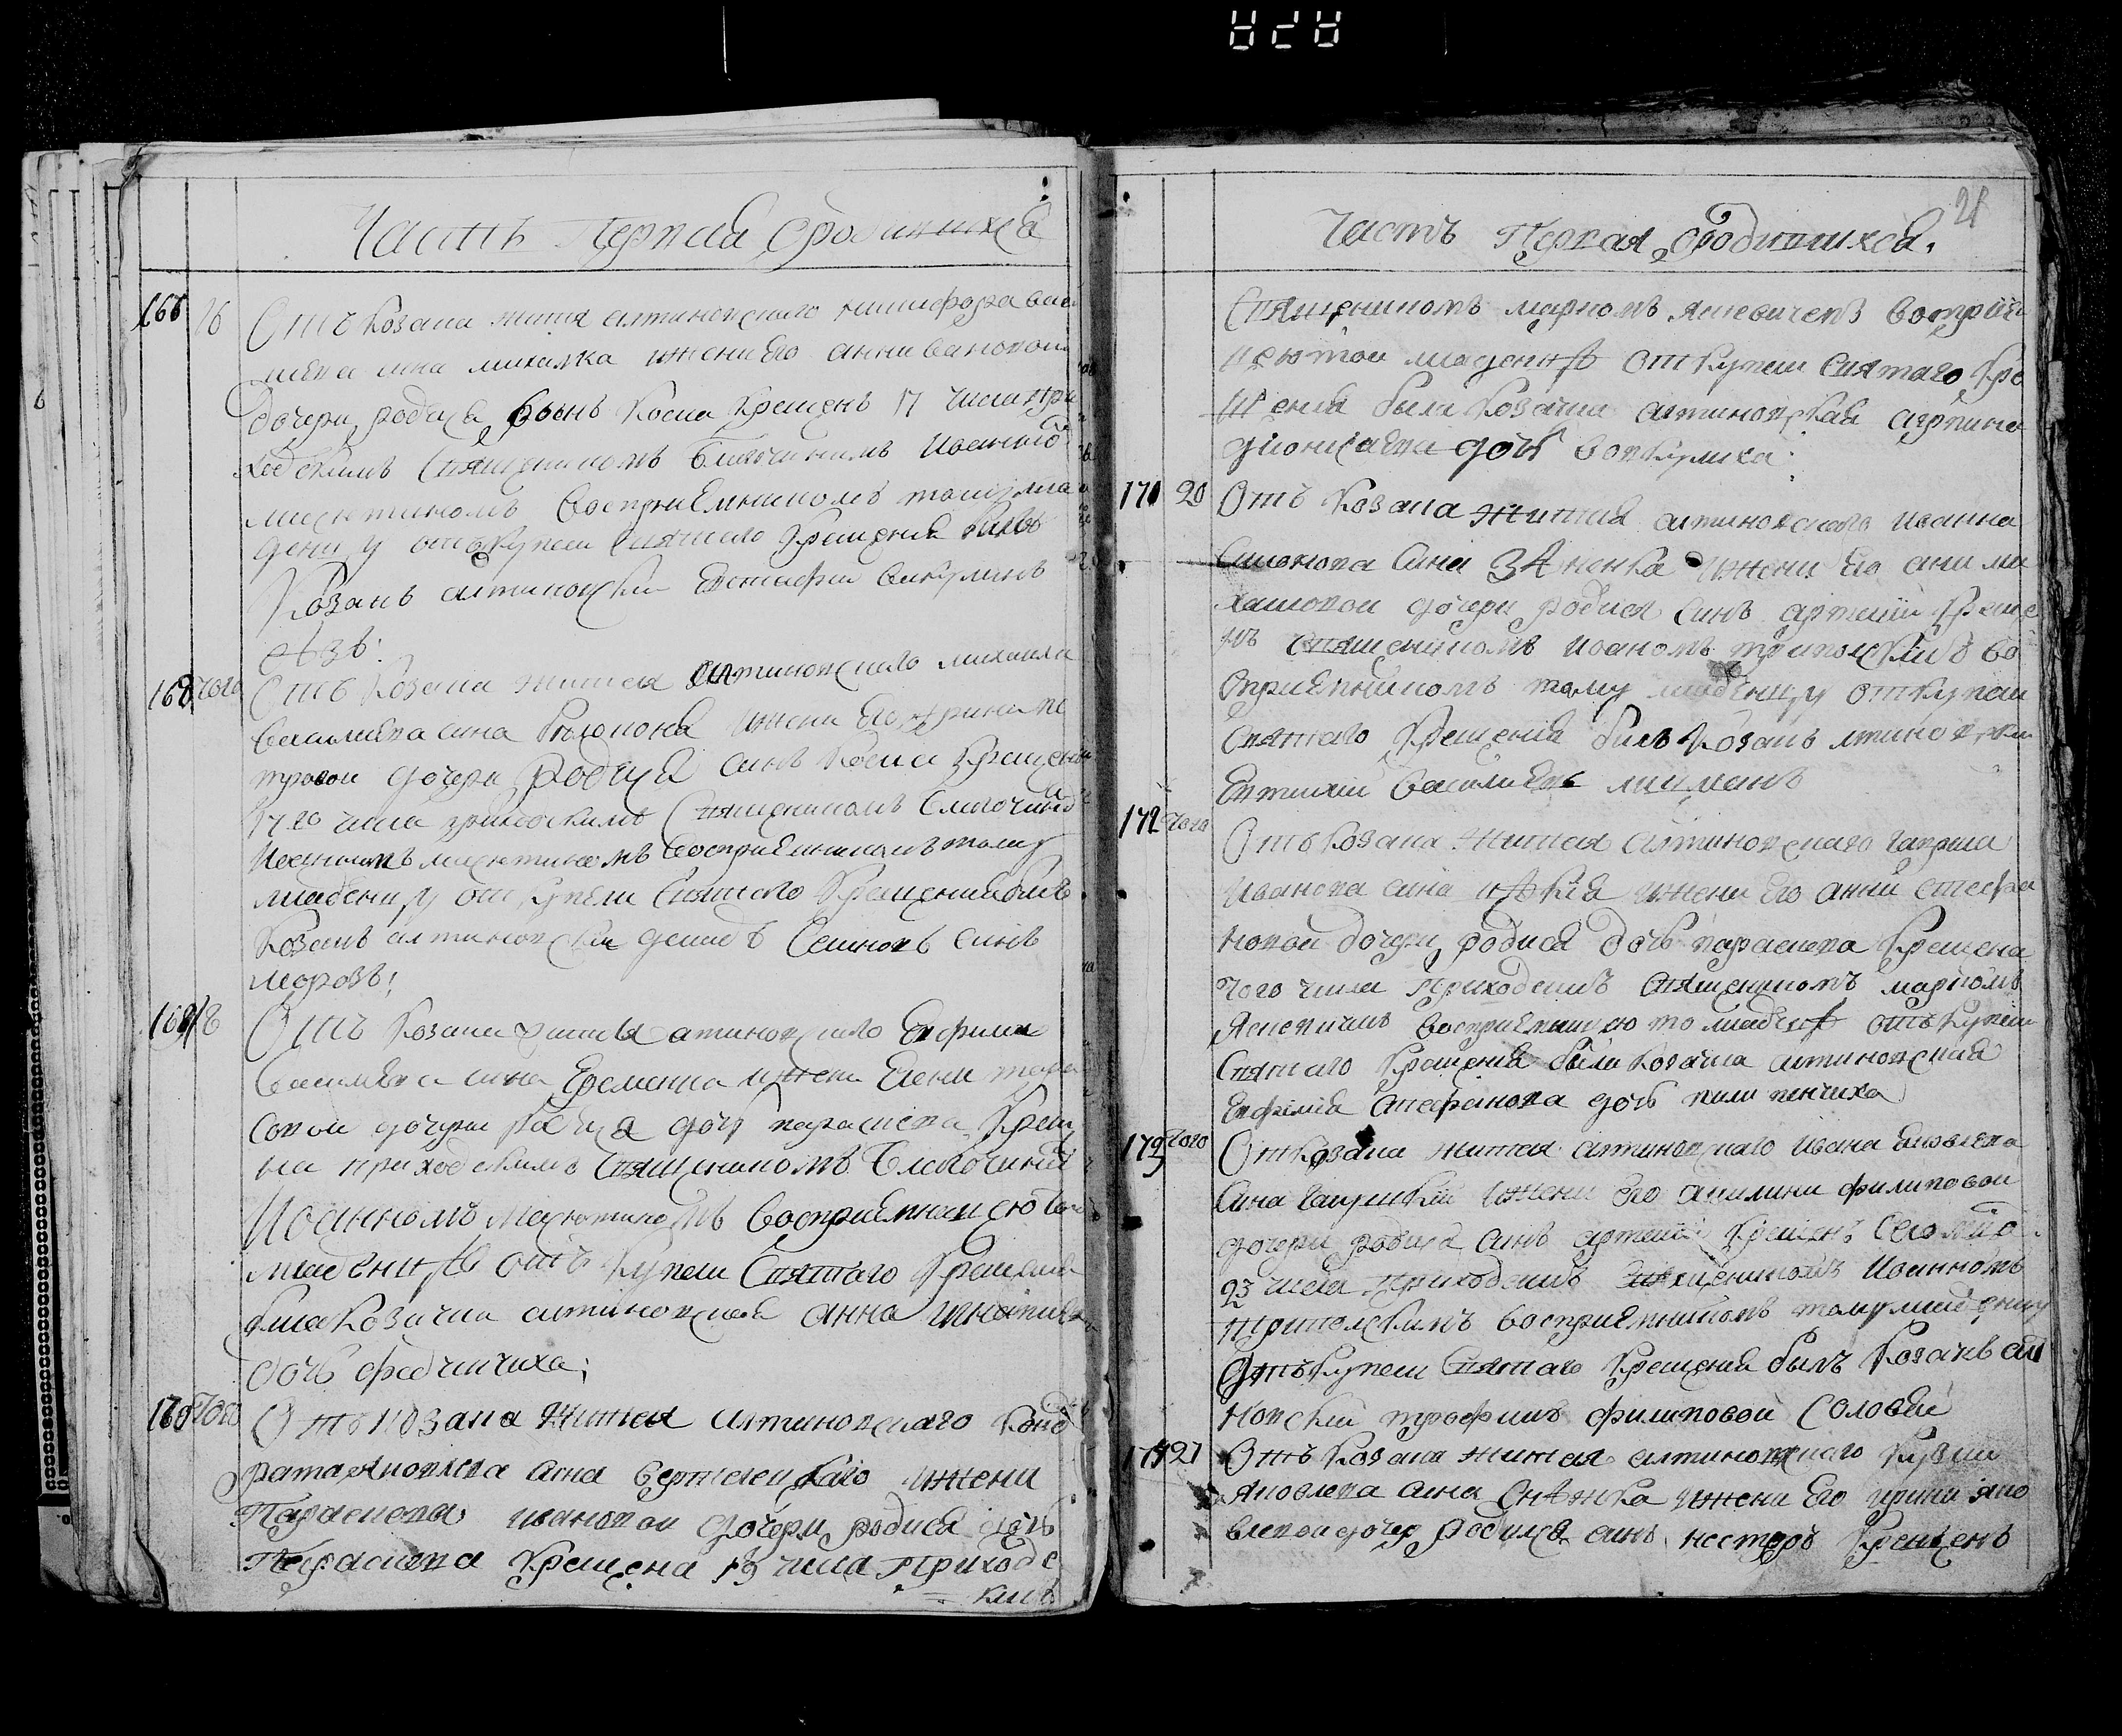 Часть Первая о родившихся
166 16 Отъ Козака жителя алтиновского никифора васи
сина михалка и жени его анни ивановой
дочери родися синъ Косма Крещенъ 17 числа при
ходскимъ Священикомъ Благочинимъ Иоанномъ
восприемникомъ тому мла
денцу отъ купели святаго Крещения билъ
Козакъ алтиновский Евстафий викулинъ
167 того Отъ Козака жителя алтиновского михаила
василиева сина и жени его ирини пе
тровой дочери родися синъ Косма Крещенъ
17 го числа приходскимъ Священикомъ Благочинимъ
Иоанномъ восприемникомъ тому
младенцу отъ купели Святаго Крещения билъ
Козакъ алтиновский Семиновъ синъ
морозъ;
168 18 Отъ Козака жителя алтиновского Евфима
василиева сина Еременка и жени Елени тара
совой дочери родися дочь параскева Креще
на приходскимъ священикомъ Благочинимъ
Иоанномъ восприемницею той
младенце отъ купели Святаго Крещения
била Козачка алтиновская анна игнатиева
дочь федченчиха;
169 того Отъ Козака жителя алтиновскаго Конд
рата Яковлева сина и жени
Параскеви ивановой дочери родися дочь
Параскева Крещена 19 числа Приходс
кимъ
21
Часть Первая о родившихся.
Священикомъ маркомъ Ясневичемъ восприем
ницею той младенце от купели Святаго Кре
щения била Козачка алтиновская агрипина
дионисиева дочь вовкулиха.
170 20 Отъ Козака жителя алтиновского иоанна
сина и жени его анни ми
хайловой дочери родися синъ артемий Креще
нъ священикомъ иоаномъ триполскимъ во
сприемникомъ тому младенцу от купели
Святаго Крещения билъ Козакъ алтиновский
Евтихий василиевъ
172 того Отъ Козака жителя алтиновскаго гаврила
иванова сина и жени его анни стефа
новой дочери родися дочь параскева Крещена
того числа приходскимъ священикомъ маркомъ
Ясневичемъ восприемницею той младенце отъ купели
Святаго Крещения била Козачка алтиновская
Евфимия Стефанова дочь пилипенчиха
173 того От Козака жителя алтиновскаго ивана Яковлева
сина и жени его акилини филиповой
дочери родися синъ артемий Крещенъ сего мая
23 числа приходскимъ священикомъ иоанномъ
триполскимъ восприемникомъ тому младенцу
отъ купели Святаго Крещения билъ Козакъ алти
новский трофимъ филиповой Соловей
174 21 Отъ Козака жителя алтиновскаго Кузми
Яковлева сина Снежка и жени его ирини яко
влевой дочер родился синъ нестеръ Крещенъ